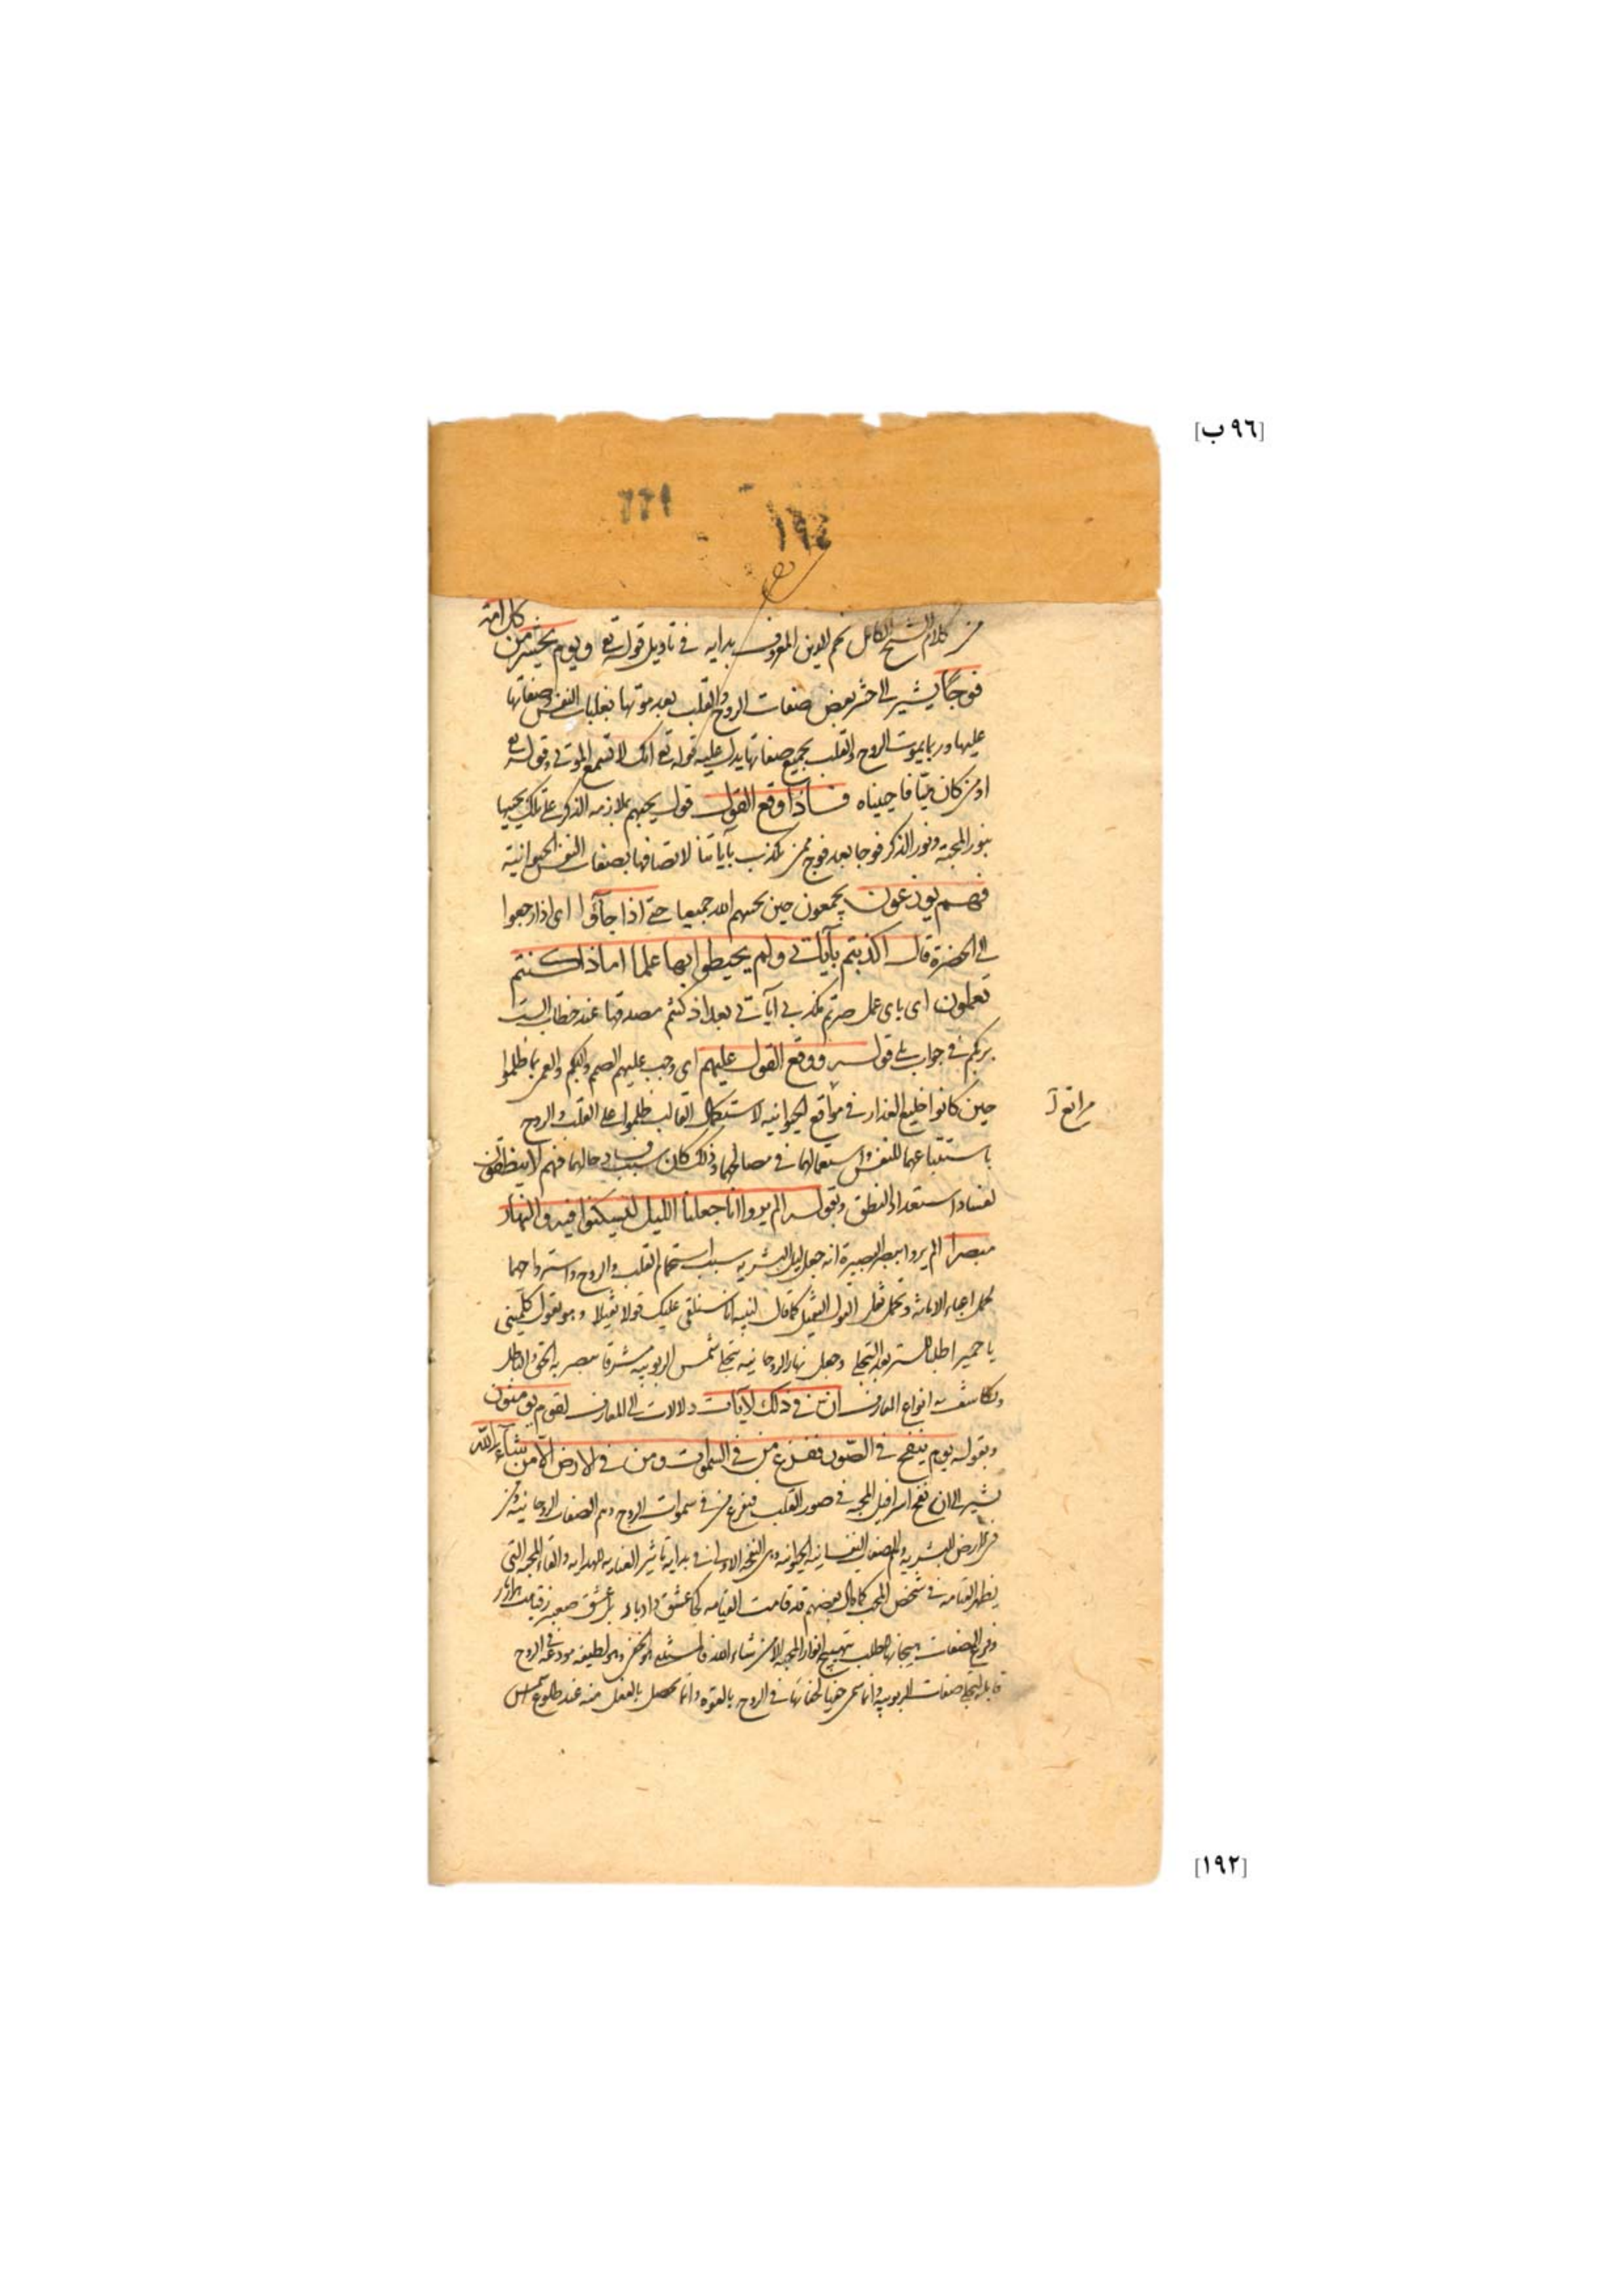 [٩٦ ب]
١٩٤
من كلام الشيخ الكامل نجم الدين المعروف بدايه في تاويل قوله تع ويوم نحشر من كل امة
فوجًا يشير الى حشر بعض صفات الروح والقلب بعد موتها بغلبات النفس وصفاتها
عليها وربما يموت الروح والقلب بجميع صفاتها يدل عليه قوله تع انك لا تسمع الموتى وقوله تع
او من كان ميتا فاحييناه فاذا وقع القول قول يحييهم بملازمة الذكر على تلك يحييها
بنور المحبة ونور الذكر فوجا بعد فوج ممن يكذب بآياتنا لاتصافها بصفات النفس الحيوانية
فهم يوزعون يجمعون حين يحييهم الله جميعا حتى اذا جآؤا اى اذا رجعوا
الى الحضرة قال اكذبتم بآياتى ولم يحيطوا بها علما اما ذا كنتم
تعملون اى باى عمل صرتم تكذبى آياتى بعد اذ كنتم مصدقها عند خطاب الست
بربكم فى جواب بلى قوله ووقع القول عليهم اى وجب عليهم الصمم والبكم والعمى بما ظلموا
حين كانوا خليع العذار فى مواقع الحيوانيه لاستكمال القالب فظلموا على القلب والروح
مراتع آ
باستتباعهما للنفس واستعمالهما فى مصالحهما وذلك كان سبب فساد حالهما فهم لا ينطقون
لفساد استعداد النطق وبقوله الم يروا انا جعلنا الليل ليسكنوا فيه والنهار
مبصرا الم يروا ببصر البصيرة انه جعل ليل البشرية سبب استجمام القلب والروح واسترواحهما
لحمل اعباء الامانة وتحمل ثقل القول الثقيل كما قال لنبيه انا سنلقى عليك قولا ثقيلا وهو بقول كلمينى
يا حميرا طلبا للستر بعد التجلى وجعل نهار الروحانيه بتجلى شمس الربوبيه مشرقا يبصر به الحق والباطل
وتكاشف به انواع المعارف ان فى ذلك لآيات دلالات الى المعارف لقوم يؤمنون
وبقوله يوم ينفخ فى الصور ففزع من فى السموات ومن فى الارض الا من شآء الله
يشير الى ان نفخ اسرافيل المحبه فى صور القلب فيفزع من فى سموات الروح وهم الصفات الروحانيه ومن
فى الارض البشريه وهم الصفات النفسانيه الحيوانيه وهى النفخة الاولى فى بداية تاثير العنايه للهدايه والقاء المحبه التى
يظهر القيامه فى شخص المحب كما قال بعضهم قد قامت القيامه كجا عشق داد بار
وفزع الصفات هيجانها للطلب بتهييج انوار المحبه الا من شاء الله فالمستثنى هو الخفى وهو لطيفه مودعه فى الروح
قابله لتجلى صفات الربوبيه وانما سمى خفيا لخفائها فى الروح بالقوه وانما يحصل بالفعل منه عند طلوع شمس
[١٩٢]